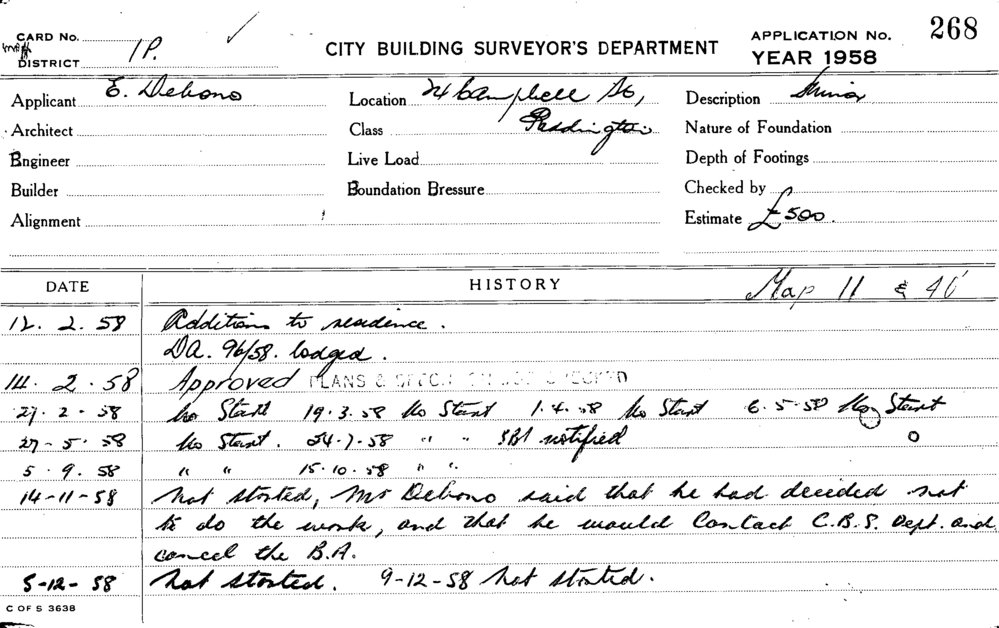 CARD NO. CITY BUILDING SURVEYOR'S DEPARTMENT APPLICATION NO. 268
DISTRICT 1P. YEAR 1958
Applicant E. Debono Location 24 Campbell St, Description Minor
Architect Class Paddington Nature of Foundation
Engineer Live Load Depth of Footings
Builder Foundation Pressure Checked by
Alignment Estimate £500.
DATE HISTORY Map 11 & 40
12. 2. 58 Additions to residence.
DA. 96/58. lodged.
14. 2. 58 Approved PLANS & SPECN CHECKED
27. 2 - 58 No Start 19.3.58 No Start 1.4.58 No Start 6.5.58 No Start
27 - 5. 58 No Start. 24-7-58 " " SBI notified
5. 9. 58 " " 15.10.58 " "
14-11-58 Not started, Mr Debono said that he had decided not
to do the work, and that he would contact C.B.S. Dept. and
cancel the B.A.
5-12-58 Not started. 9-12-58 Not started.
C OF S 3638